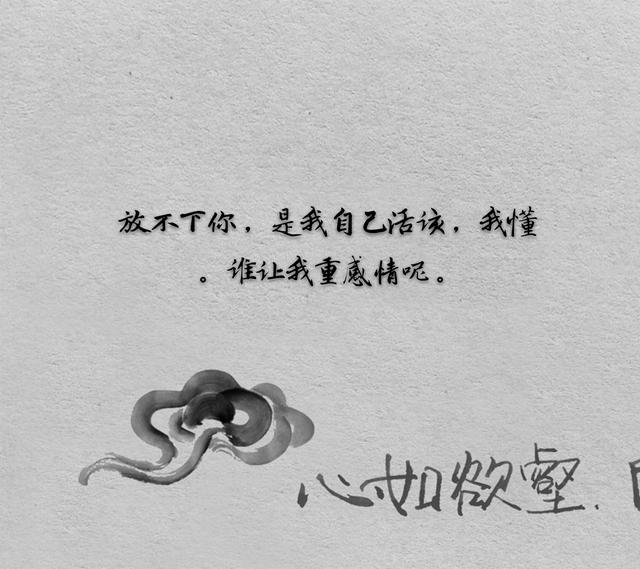 放不下你，是我自己活该，我懂
。谁让我重感情呢。
心如欲壑.